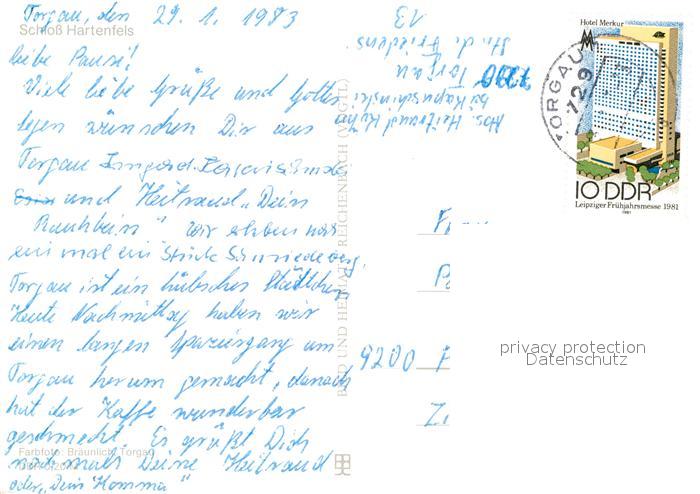 Torgau, den 29. 1. 1983
Schloß Hartenfels
Liebe Pausi!
Viele liebe Grüße und Gottes
segen wünschen Dir aus
Torgau Irmgard
und Heltraud „Dein
Rauhbein“ Wir erleben
ein mal ein Stück Schmiedeberg,
Torgau ist ein hübsches Städtchen
Heute Nachmittag haben wir
einen langen Spaziergang um
Torgau herum gemacht, danach
hat der Kaffe wunderbar
geschmeckt. Es grüßt Dich
nochmals Deine Heltraud
oder „Dein Komma“
Farbfoto: Bräunlich, Torgau
BILD UND HEIMAT REICHENBACH (VOGTL)
Abs. Heltraud
bei
7290 Torgau
Str. d. Friedens
13
9200 F
Hotel Merkur
MM
10 DDR
Leipziger Frühjahrsmesse 1981
TORGAU
729
privacy protection
Datenschutz